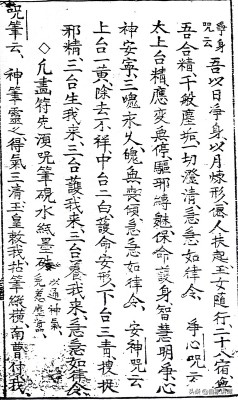 净身咒云 吾以日净身以月煉形僊人扶起玉女随行二十八宿與
吾合精千敬塵垢一切澄清急急如律令 净心咒云
太上台精應变無停驅邪縛魅保命護身智慧明净心
神安寧三魂永久魄無喪傾急急如律令 安神咒云
上台一黄除去不祥中台二白護命安形下台三青搜捉
邪精三台生我来三台護我来三台養我来急急如律令
◇凡畫符先須咒筆硯水紙墨硃 以通神氣
咒筆云神筆靈之得氣三清玉皇敕我拈筆縱横南曹付我